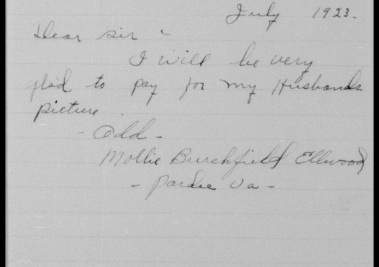 July 1923.
Dear Sir -
I will be very
glad to pay for my Husbands
picture.
- Add -
Mollie Burchfield Ellwood
- Pardee Va -